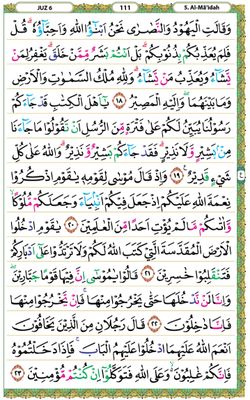 JUZ 6 111 5. Al-Mâ'idah
وَقَالَتِ الْيَهُوْدُ وَالنَّصٰرٰى نَحْنُ اَبْنٰۤؤُا اللّٰهِ وَاَحِبَّاۤؤُهٗ ۗ قُلْ
فَلِمَ يُعَذِّبُكُمْ بِذُنُوْبِكُمْ ۗ بَلْ اَنْتُمْ بَشَرٌ مِّمَّنْ خَلَقَ ۗ يَغْفِرُ لِمَنْ
يَّشَاۤءُ وَيُعَذِّبُ مَنْ يَّشَاۤءُ ۗ وَلِلّٰهِ مُلْكُ السَّمٰوٰتِ وَالْاَرْضِ
وَمَا بَيْنَهُمَا ۖ وَاِلَيْهِ الْمَصِيْرُ ١٨ يٰٓاَهْلَ الْكِتٰبِ قَدْ جَاۤءَكُمْ
رَسُوْلُنَا يُبَيِّنُ لَكُمْ عَلٰى فَتْرَةٍ مِّنَ الرُّسُلِ اَنْ تَقُوْلُوْا مَا جَاۤءَنَا
مِنْۢ بَشِيْرٍ وَّلَا نَذِيْرٍ ۗ فَقَدْ جَاۤءَكُمْ بَشِيْرٌ وَّنَذِيْرٌ ۗ وَاللّٰهُ عَلٰى كُلِّ
شَيْءٍ قَدِيْرٌ ١٩ وَاِذْ قَالَ مُوْسٰى لِقَوْمِهٖ يٰقَوْمِ اذْكُرُوْا
نِعْمَةَ اللّٰهِ عَلَيْكُمْ اِذْ جَعَلَ فِيْكُمْ اَنْۢبِيَاۤءَ وَجَعَلَكُمْ مُّلُوْكًا ۙ
وَّاٰتٰىكُمْ مَّا لَمْ يُؤْتِ اَحَدًا مِّنَ الْعٰلَمِيْنَ ٢٠ يٰقَوْمِ ادْخُلُوا
الْاَرْضَ الْمُقَدَّسَةَ الَّتِيْ كَتَبَ اللّٰهُ لَكُمْ وَلَا تَرْتَدُّوْا عَلٰٓى اَدْبَارِكُمْ
فَتَنْقَلِبُوْا خٰسِرِيْنَ ٢١ قَالُوْا يٰمُوْسٰٓى اِنَّ فِيْهَا قَوْمًا جَبَّارِيْنَ ۖ
وَاِنَّا لَنْ نَّدْخُلَهَا حَتّٰى يَخْرُجُوْا مِنْهَا ۚ فَاِنْ يَّخْرُجُوْا مِنْهَا
فَاِنَّا دٰخِلُوْنَ ٢٢ قَالَ رَجُلَانِ مِنَ الَّذِيْنَ يَخَافُوْنَ
اَنْعَمَ اللّٰهُ عَلَيْهِمَا ادْخُلُوْا عَلَيْهِمُ الْبَابَ ۚ فَاِذَا دَخَلْتُمُوْهُ
فَاِنَّكُمْ غٰلِبُوْنَ ۚ وَعَلَى اللّٰهِ فَتَوَكَّلُوْٓا اِنْ كُنْتُمْ مُّؤْمِنِيْنَ ٢٣